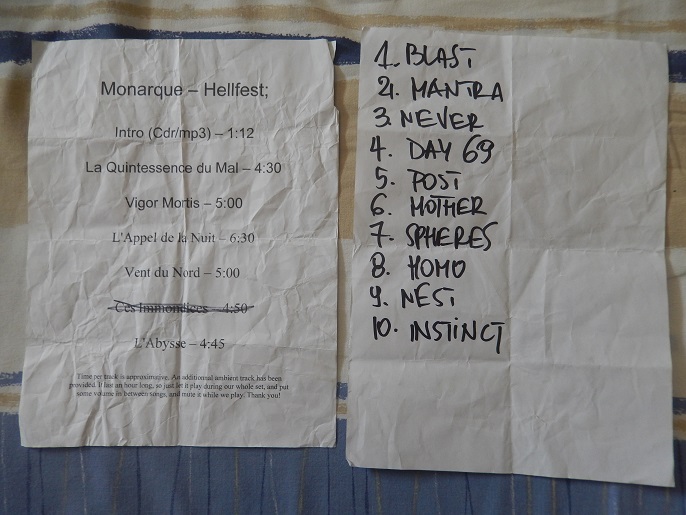 Monarque – Hellfest;
Intro (Cdr/mp3) – 1:12
La Quintessence du Mal – 4:30
Vigor Mortis – 5:00
L'Appel de la Nuit – 6:30
Vent du Nord – 5:00
Ces Immondices – 4:50
L'Abysse – 4:45
Time per track is approximative. An additionnal ambient track has been
provided. It last an hour long, so just let it play during our whole set, and put
some volume in between songs, and mute it while we play. Thank you!
1. BLAST
2. MANTRA
3. NEVER
4. DAY 69
5. POST
6. MOTHER
7. SPHERES
8. HOMO
9. NEST
10. INSTINCT